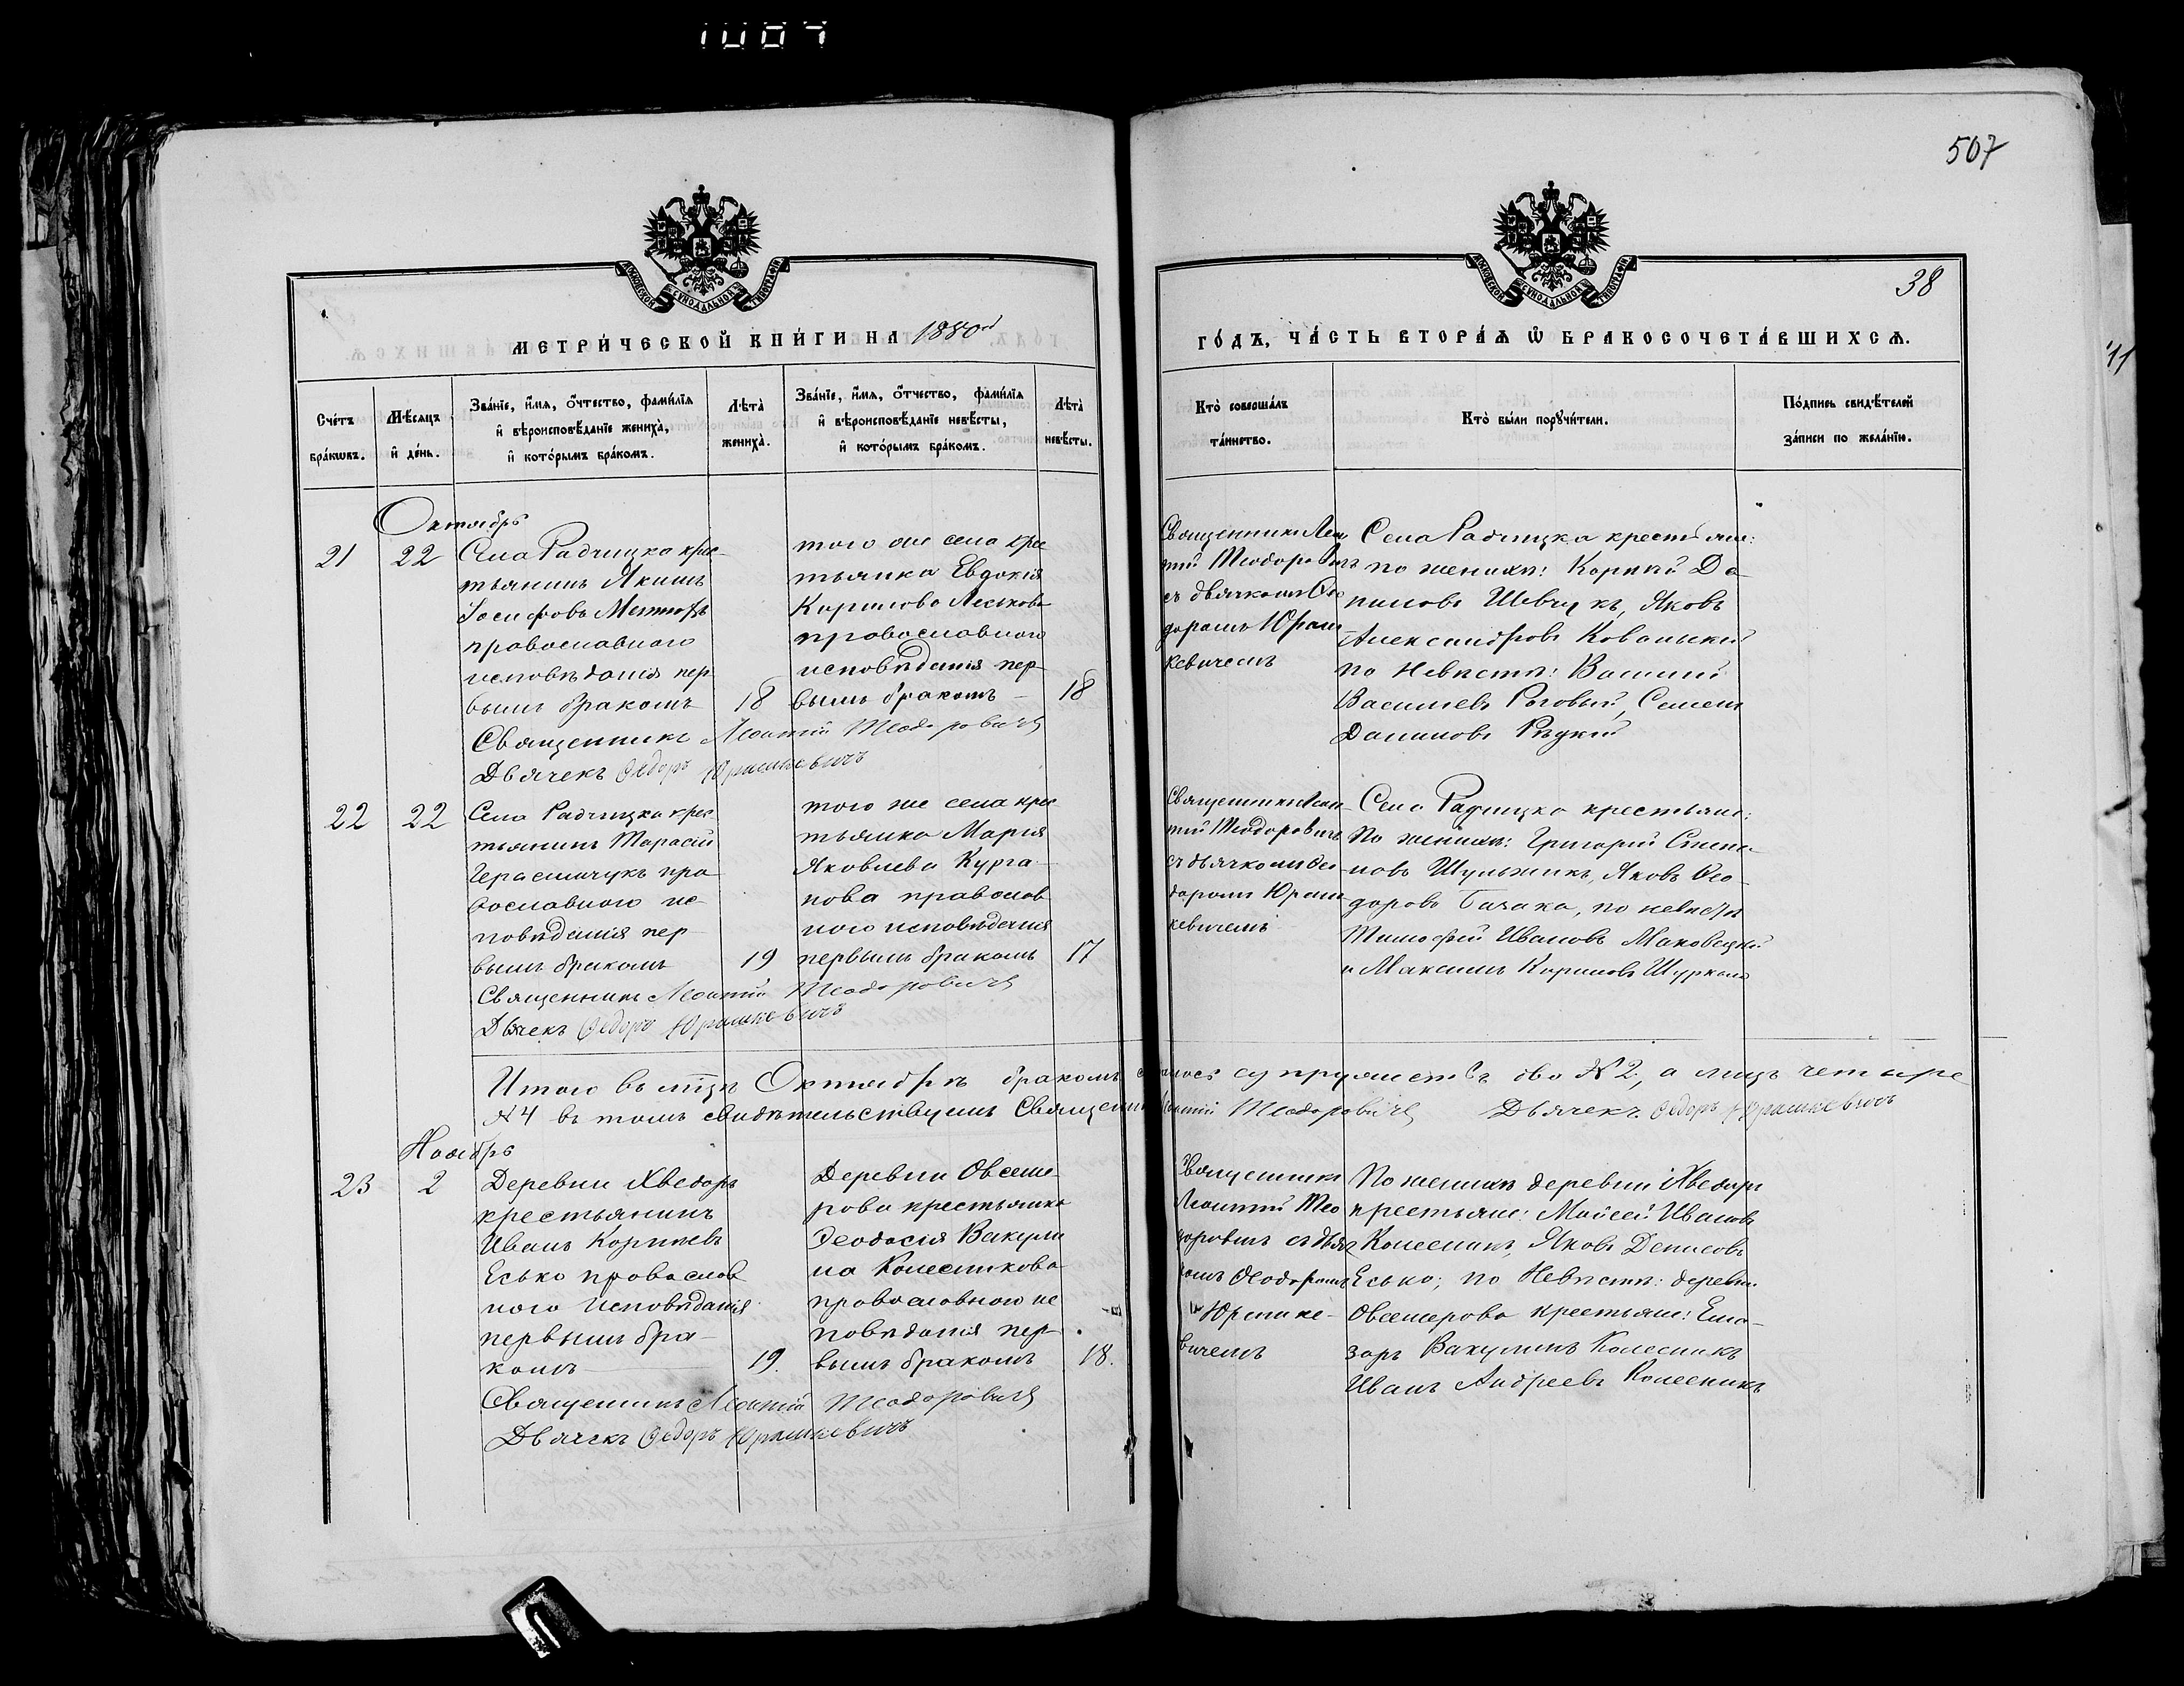 1007
507
38
11
МОСКОВСКОЙ СѴНОДАЛЬНОЙ ТИПОГРАФІИ
МОСКОВСКОЙ СѴНОДАЛЬНОЙ ТИПОГРАФІИ
МЕТРИ́ЧЕСКОЙ КНИ́ГИ НА 1880й
ГО́ДЪ, ЧА́СТЬ ВТОРА́Я Ѡ҆ БРАКОСОЧЕТА́ВШИХСЯ.
Сче́тъ бра́кѡвъ.
Мѣ́сяцъ и҆ де́нь.
Зва́нїе, и҆́мя, о҆́чтество, фами́лїя и҆ вѣроисповѣ́данїе жениха̀, и҆ кото́рымъ бра́комъ.
Лѣ́та̀ жениха̀.
Зва́нїе, и҆́мя, о҆́тчество, фами́лїя и҆ вѣроисповѣ́данїе невѣ́сты, и҆ кото́рымъ бра́комъ.
Лѣ́та̀ невѣ́сты.
Кто̀ соверша́лъ та́инство.
Кто̀ бы́ли порꙋчи́тели.
По́дпись свидѣ́телей за́писи по жела́нїю.
Октябрь
21
22
Села Радчицка крес-
тьянинъ Якимъ
Іосифовъ
православнаго
исповѣданія пер
вымъ бракомъ
18
того же села кре
тьянка Евдокія
Карпова Леськова
православнаго
исповѣданія пер-
вымъ бракомъ –
18
Священникъ Леон
тій Теодоровичъ
съ дьячкомъ Ѳео
доромъ Юраш
кевичемъ
Села Радчицка крестьяне:
по женихѣ: Корній Да-
ниловъ Шевчукъ, Яковъ
Александровъ Ковальскій
по Невѣстѣ: Василій
Васильевъ Роговый, Семенъ
Даниловъ Рѣцкій
Священникъ Леонтій Теодоровичъ
Дьячекъ Ѳедоръ Юрашкевичъ
22
22
Села Радчицка крес-
тьянинъ Тарасій
Герасимчукъ пра
вославнаго ис-
повѣданія пер-
вымъ бракомъ
19
того же села крес
тьянка Марія
Яковлева Курга-
нова православ
наго исповѣданія
первымъ бракомъ
17
Священникъ Леон-
тій Теодоровичъ
съ дьячкомъ Ѳео
доромъ Юраш
кевичемъ
Села Радчицка крестьяне:
По женихѣ: Григорій Степа-
новъ Шульжикъ, Яковъ Ѳео-
доровъ Бачака, по невѣстѣ
Тимофей Ивановъ Маковецкій
и Максимъ Карповъ Шуркало
Священникъ Леонтій Теодоровичъ
Дьячекъ Ѳедоръ Юрашкевичъ
Итого въ мц҃ѣ Октябрѣ бракомъ супружествъ два №2, а лицъ четыре
№4 въ томъ свидѣтельствуемъ Священникъ Леонтій Теодоровичъ Дьячекъ Ѳедоръ Юрашкевичъ
Ноябрь
23
2
Деревни Хведоръ
крестьянинъ
Иванъ Корнѣевъ
Есько православ
наго исповѣданія
первымъ бра-
комъ
19.
Деревни Овсеме-
рова крестьянка
Ѳеодосія Вакули
на Колесникова
православнаго ис
повѣданія пер-
вымъ бракомъ
18.
Священникъ
Леонтій Тео
доровичъ съ дьяч
комъ Ѳеодоромъ
Юрашке-
вичемъ
По женихѣ деревни Хведоръ
крестьяне: Мойсей Ивановъ
Колесникъ, Яковъ Денисовъ
Есько; по Невѣстѣ: деревни
Овсемерова крестьяне: Ела-
заръ Вакулинъ Колесникъ
Иванъ Андреевъ Колесникъ
Священникъ Леонтій Теодоровичъ
Дьячекъ Ѳедоръ Юрашкевичъ